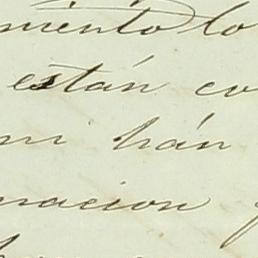 miento lo
están co
m hán
nacion